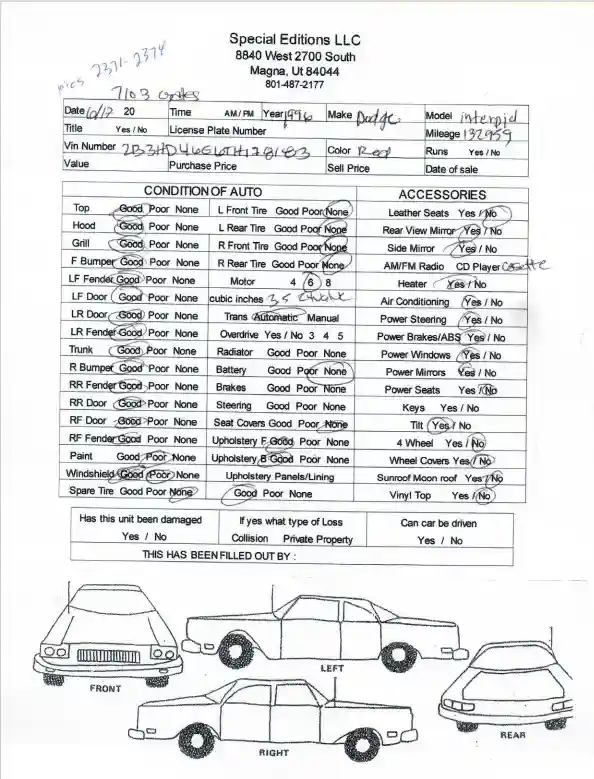 Special Editions LLC
8840 West 2700 South
Magna, Ut 84044
801-487-2177
pics 2371-2374
7103
Date 6/17 20 Time AM/PM Year 1996 Make Dodge Model interpid
Title Yes / No License Plate Number Mileage 132959
Vin Number 2B3HD46E6TH178183 Color Red Runs Yes / No
Value Purchase Price Sell Price Date of sale
CONDITION OF AUTO ACCESSORIES
Top Good Poor None L Front Tire Good Poor None Leather Seats Yes / No
Hood Good Poor None L Rear Tire Good Poor None Rear View Mirror Yes / No
Grill Good Poor None R Front Tire Good Poor None Side Mirror Yes / No
F Bumper Good Poor None R Rear Tire Good Poor None AM/FM Radio CD Player Casette
LF Fender Good Poor None Motor 4 6 8 Heater Yes / No
LF Door Good Poor None cubic inches 3.5 Air Conditioning Yes / No
LR Door Good Poor None Trans Automatic Manual Power Steering Yes / No
LR Fender Good Poor None Overdrive Yes / No 3 4 5 Power Brakes/ABS Yes / No
Trunk Good Poor None Radiator Good Poor None Power Windows Yes / No
R Bumper Good Poor None Battery Good Poor None Power Mirrors Yes / No
RR Fender Good Poor None Brakes Good Poor None Power Seats Yes / No
RR Door Good Poor None Steering Good Poor None Keys Yes / No
RF Door Good Poor None Seat Covers Good Poor None Tilt Yes / No
RF Fender Good Poor None Upholstery F Good Poor None 4 Wheel Yes / No
Paint Good Poor None Upholstery B Good Poor None Wheel Covers Yes / No
Windshield Good Poor None Upholstery Panels/Lining Sunroof Moon roof Yes / No
Spare Tire Good Poor None Good Poor None Vinyl Top Yes / No
Has this unit been damaged If yes what type of Loss Can car be driven
Yes / No Collision Private Property Yes / No
THIS HAS BEEN FILLED OUT BY :
LEFT
FRONT
REAR
RIGHT